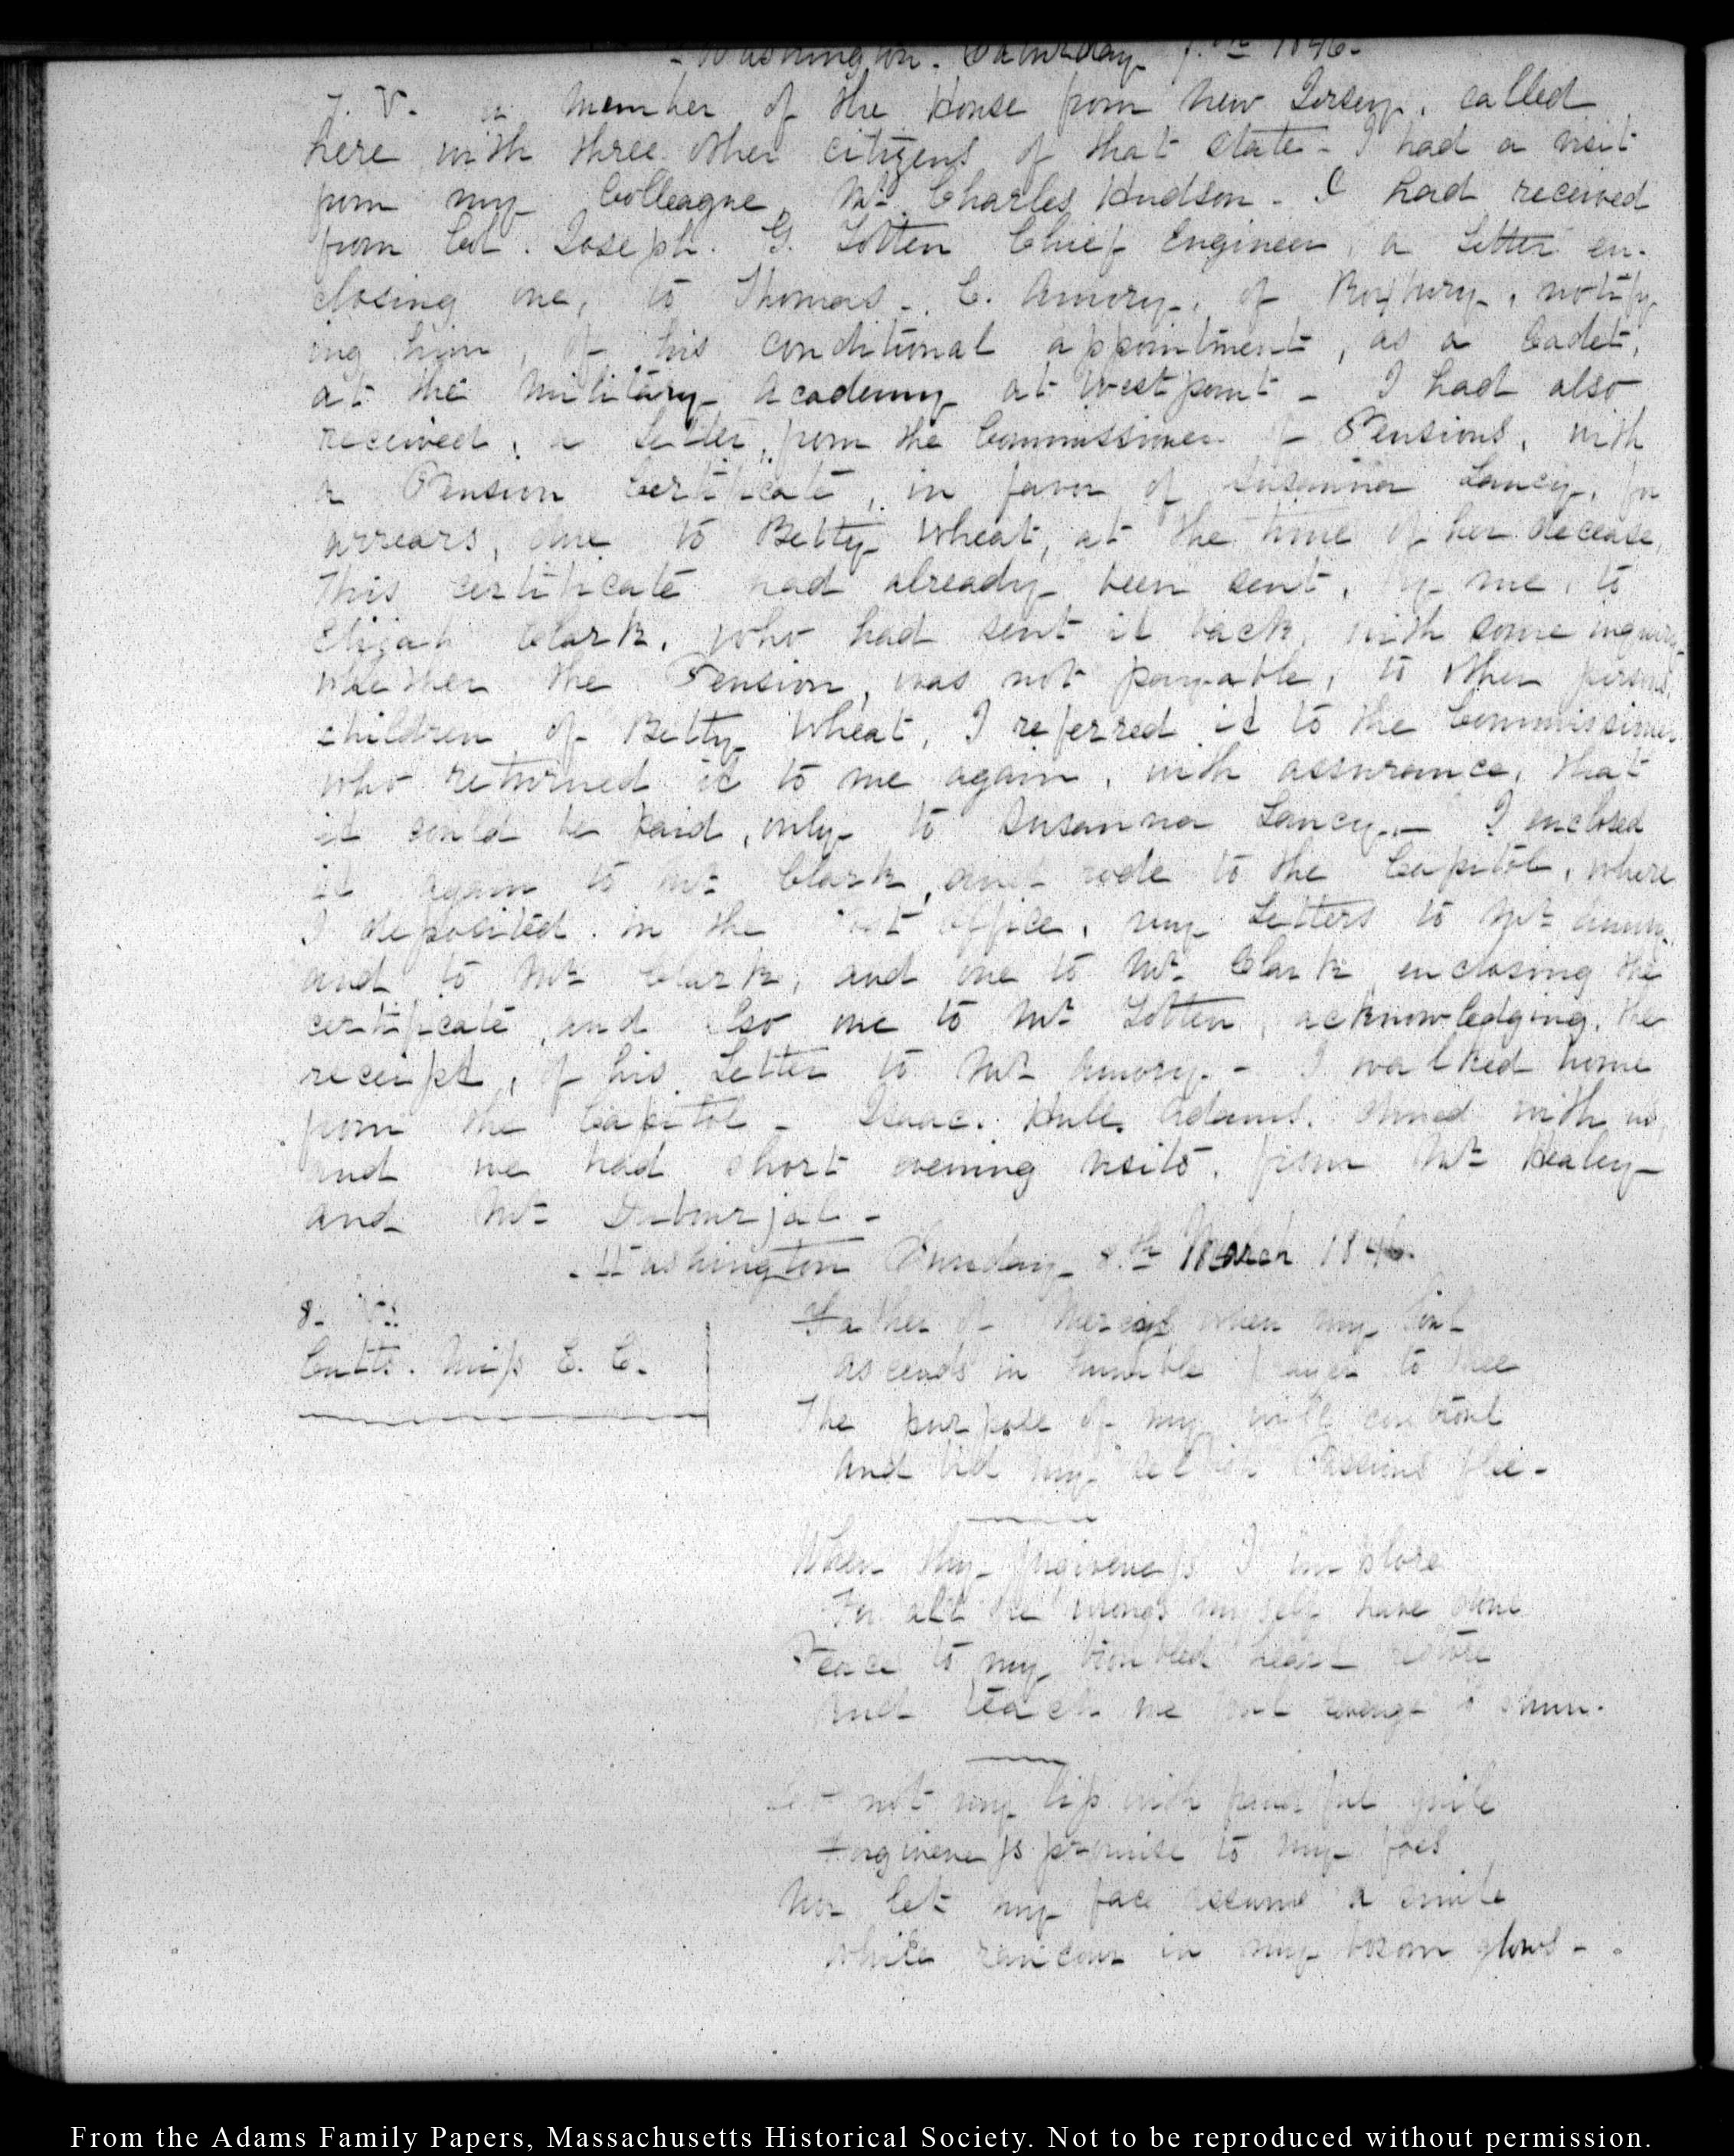 - Washington. Saturday 7.th 1846-
7. V. a member of the House from New Jersey, called
here with three other citizens of that State - I had a visit
from my Colleague, Mr. Charles Hudson - I had received
from Col. Joseph. G. Totten Chief Engineer, a Letter en-
closing one, to Thomas. C. Amory, of Roxbury, notify
ing him, of his conditional appointment, as a Cadet,
at the Military Academy at Westpoint - I had also
received, a Letter, from the Commissioner of Pensions, with
a Pension Certificate, in favor of Susanna Lancy, for
arrears, due to Betty Wheat, at the time of her decease,
This certificate had already been sent, by me, to
Elijah Clark, who had sent it back, with some inquiry
whether the Pension, was not payable, to other persons,
children of Betty Wheat, I referred it to the Commissioner
who returned it to me again, with assurance, that
it could be paid, only to Susanna Lancy. - I enclosed
it again to Mr. Clark, and rode to the Capitol, where
I deposited in the Post Office, my Letters to Mr. Amory,
and to Mr. Clark, and one to Mr. Clark enclosing the
certificate, and also one to Mr. Totten, acknowledging, the
receipt, of his Letter to Mr. Amory. - I walked home
from the Capitol - Isaac. Hull. Adams. dined with us,
and we had short evening visits, from Mr. Healey
and Mr. -
- Washington Sunday 8.th March 1846.
8. V.:
Cutts. Miss E. C.
Father of Mercies when my Soul
Ascends in humble prayer to thee
The purpose of my will controul
And bid my selfish Passions flee -
When thy forgiveness I implore
For all the wrongs myself have done
Peace to my troubled heart restore
And teach me foul revenge to shun.
Let not my lip with guile
Forgiveness promise to my foes
Nor let my face assume a smile
While rancour in my bosom glows -
From the Adams Family Papers, Massachusetts Historical Society. Not to be reproduced without permission.